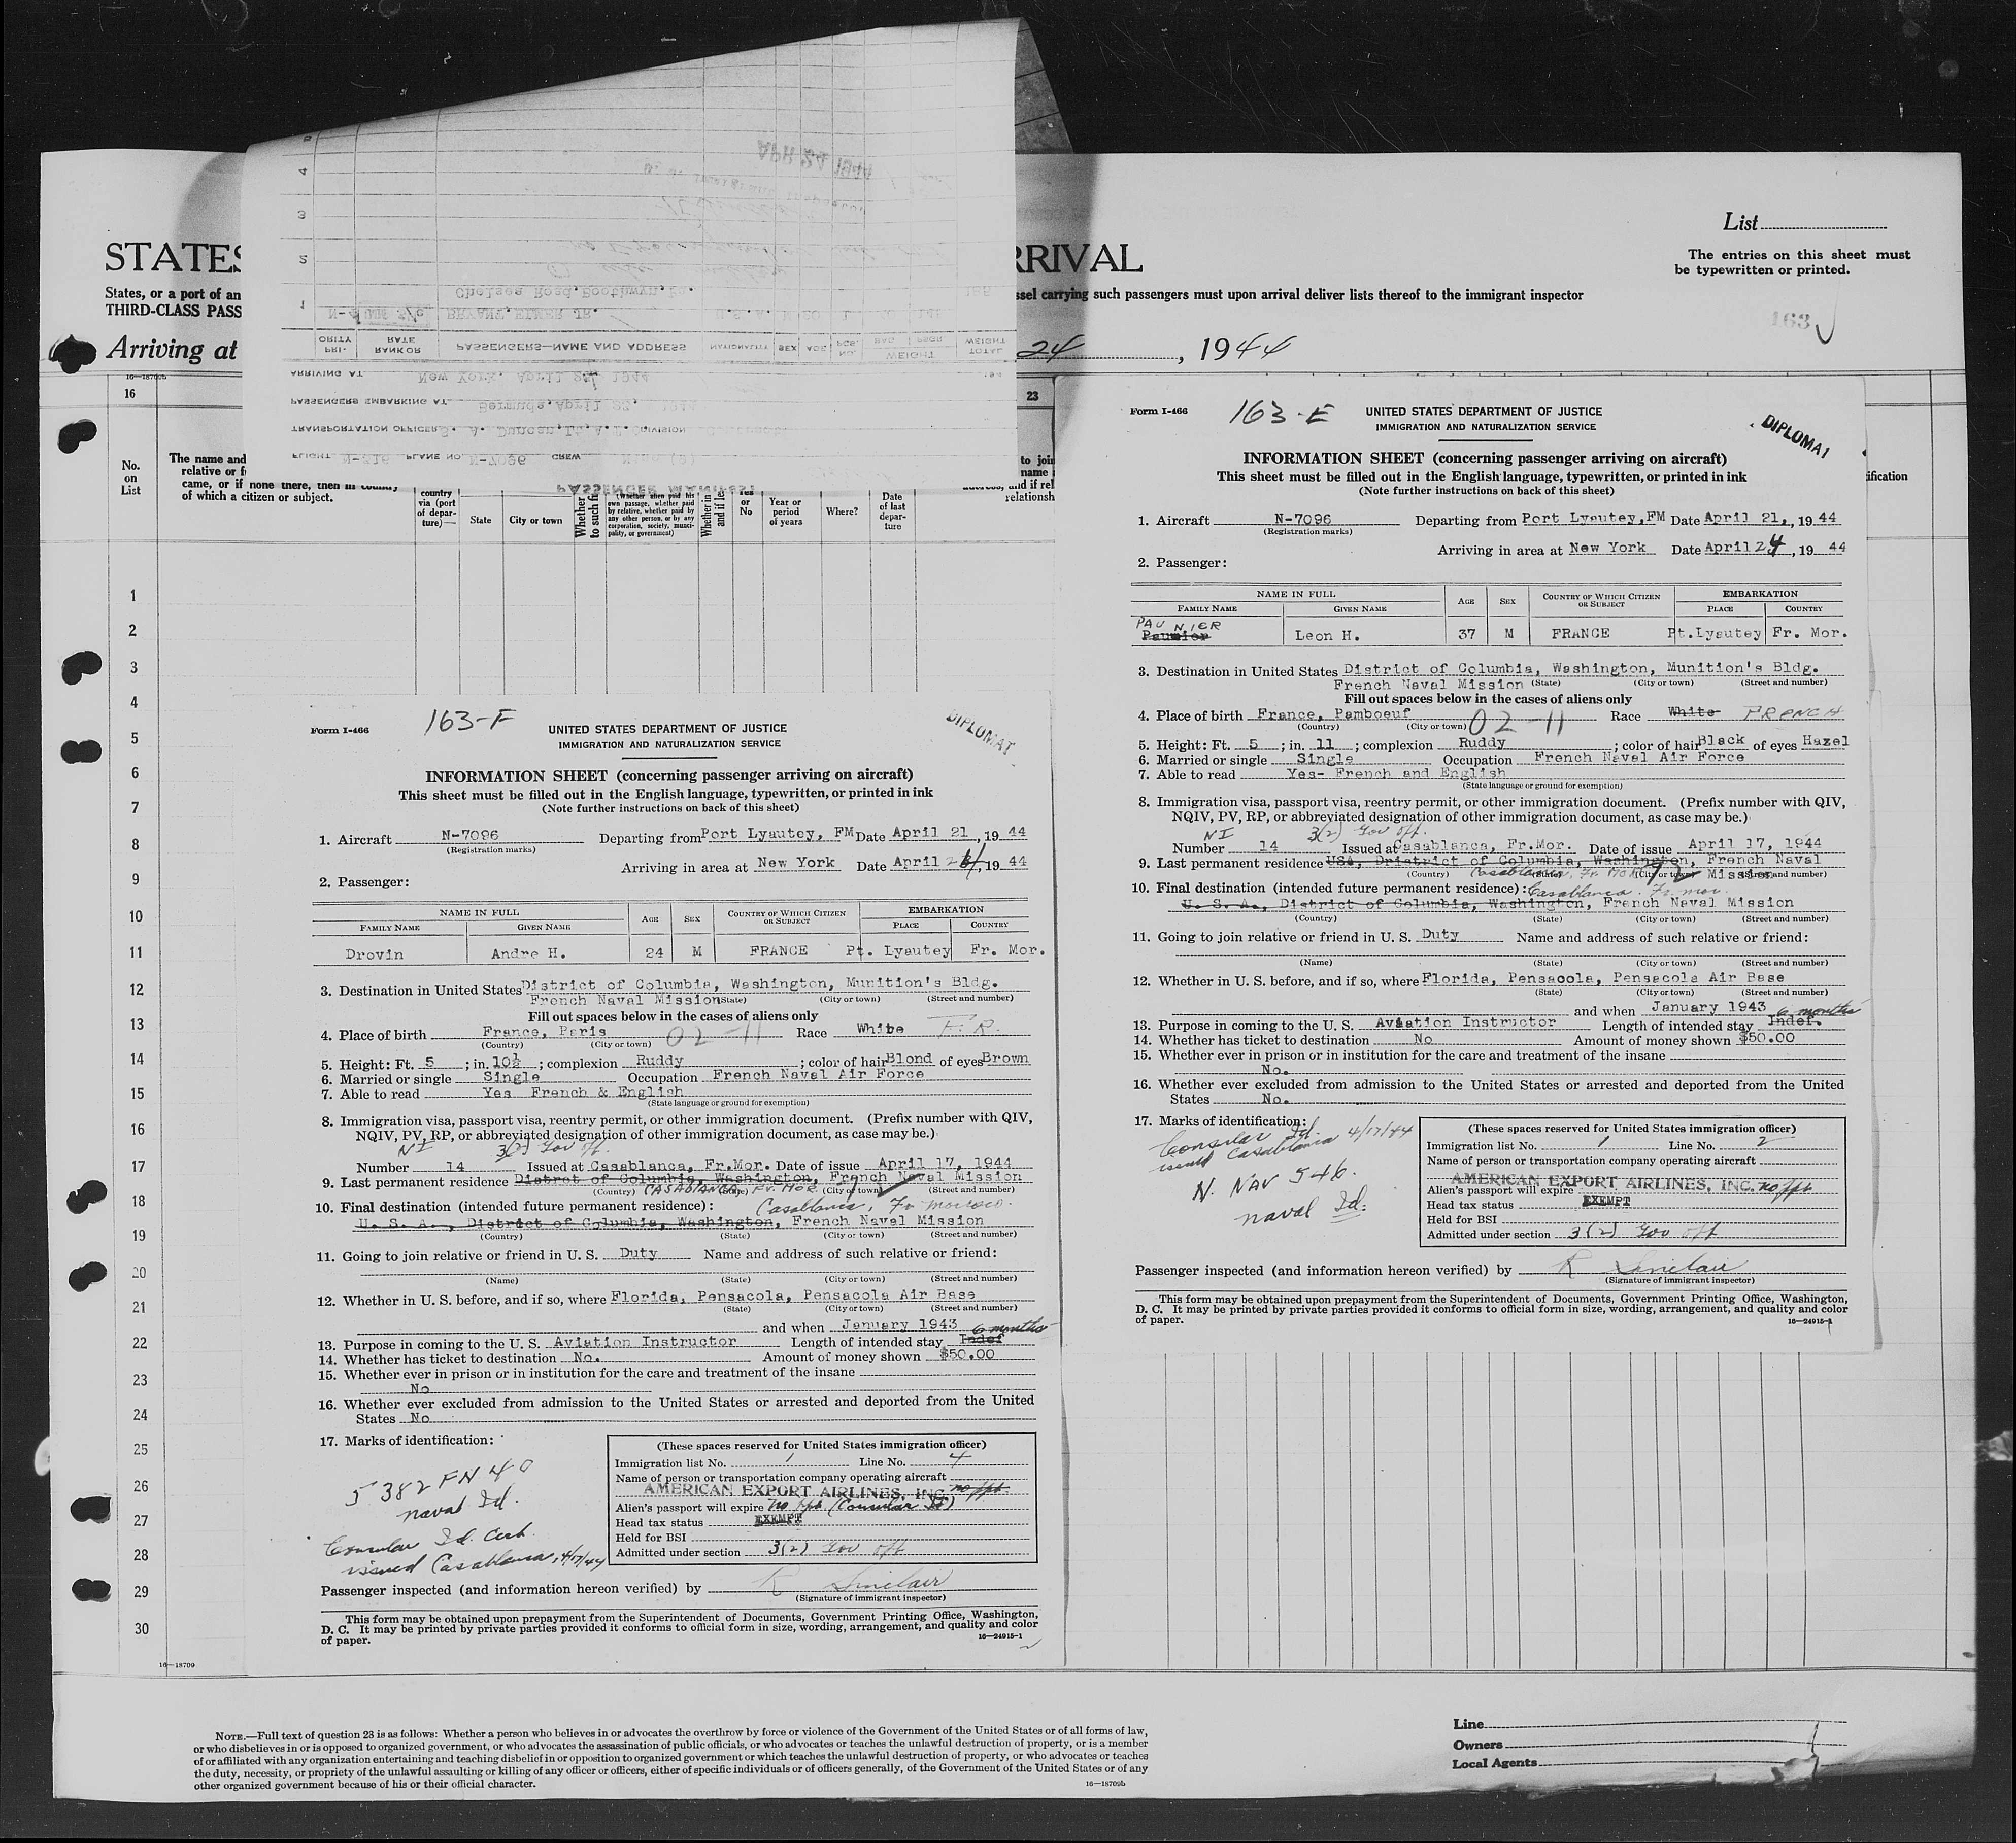 STATES
RRIVAL
List
The entries on this sheet must
be typewritten or printed.
States, or a port of an
ssel carrying such passengers must upon arrival deliver lists thereof to the immigrant inspector
THIRD-CLASS PASS
163
Arriving at
24, 1944
16—18709b
16
23
No.
on
List
The name and
relative or f
came, or if none there, then in country
of which a citizen or subject.
country
via (port
of depar-
ture)—
State
City or town
Whether
to such fi
(Whether alien paid his
own passage, whether paid
by relative, whether paid by
any other person, or by any
corporation, society, munici-
pality, or government)
Whether in
and if le
Yes
or
No
Year or
period
of years
Where?
Date
of last
depar-
ture
to join
name
address, and if rel
relationsh
ification
PASSENGER MANIFEST
FLIGHT N-316 PLANE NO. N-7096 CREW
TRANSPORTATION OFFICER S. A. Duncan, Lt. A. T. O DIVISION
PASSENGERS EMBARKING AT Bermuda, April
ARRIVING AT New York, April 24, 1944
194
PRI-
ORITY
RANK OR
RATE
PASSENGERS—NAME AND ADDRESS
NATIONALITY
SEX
AGE
NO.
PCS.
WEIGHT
BAG.
PSGR.
TOTAL
WEIGHT
1 BRYANT, ELMER JR. U.S.A.
Chelsea Road, Boothwyn, Pa.
2
3
4
5
APR 24 1944
1
2
3
4
5
6
7
8
9
10
11
12
13
14
15
16
17
18
19
20
21
22
23
24
25
26
27
28
29
30
16—18709
Form I-466
163-F
UNITED STATES DEPARTMENT OF JUSTICE
IMMIGRATION AND NATURALIZATION SERVICE
DIPLOMAT
INFORMATION SHEET (concerning passenger arriving on aircraft)
This sheet must be filled out in the English language, typewritten, or printed in ink
(Note further instructions on back of this sheet)
1. Aircraft N-7096 Departing from Port Lyautey, FM Date April 21, 1944
(Registration marks)
Arriving in area at New York Date April 24, 1944
2. Passenger:
NAME IN FULL
AGE
SEX
COUNTRY OF WHICH CITIZEN
OR SUBJECT
EMBARKATION
FAMILY NAME
GIVEN NAME
PLACE
COUNTRY
Drovin Andre H. 24 M FRANCE Pt. Lyautey Fr. Mor.
3. Destination in United States District of Columbia, Washington, Munition's Bldg.
French Naval Mission (State) (City or town) (Street and number)
Fill out spaces below in the cases of aliens only
4. Place of birth France, Paris 02-11 Race White F.R.
(Country) (City or town)
5. Height: Ft. 5 ; in. 10½ ; complexion Ruddy ; color of hair Blond of eyes Brown
6. Married or single Single Occupation French Naval Air Force
7. Able to read Yes French & English
(State language or ground for exemption)
8. Immigration visa, passport visa, reentry permit, or other immigration document. (Prefix number with QIV,
NQIV, PV, RP, or abbreviated designation of other immigration document, as case may be.)
NI 3(2) Gov off.
Number 14 Issued at Casablanca, Fr.Mor. Date of issue April 17, 1944
9. Last permanent residence Distret of Columbia, Washington, French Naval Mission
(Country) CASABLANCA, Fr. Mor. (State) (City or town) (Street and number)
10. Final destination (intended future permanent residence): Casablanca, Fr Morocco.
U. S. A., District of Columbia, Washington, French Naval Mission
(Country) (State) (City or town) (Street and number)
11. Going to join relative or friend in U. S. Duty Name and address of such relative or friend:
(Name) (State) (City or town) (Street and number)
12. Whether in U. S. before, and if so, where Florida, Pensacola, Pensacola Air Base
(State) (City or town) (Street and number)
and when January 1943 6 months
13. Purpose in coming to the U. S. Aviation Instructor Length of intended stay Indef
14. Whether has ticket to destination No. Amount of money shown $50.00
15. Whether ever in prison or in institution for the care and treatment of the insane
No
16. Whether ever excluded from admission to the United States or arrested and deported from the United
States No
17. Marks of identification:
5382 FN 40
naval Id.
Consular Id. Cert.
issued Casablanca, 4/17/44
(These spaces reserved for United States immigration officer)
Immigration list No. 1 Line No. 4
Name of person or transportation company operating aircraft
AMERICAN EXPORT AIRLINES, INC. no ppt
Alien's passport will expire no ppt (Consular Id)
Head tax status EXEMPT
Held for BSI
Admitted under section 3(2) Gov off
Passenger inspected (and information hereon verified) by R Sinclair
(Signature of immigrant inspector)
This form may be obtained upon prepayment from the Superintendent of Documents, Government Printing Office, Washington,
D. C. It may be printed by private parties provided it conforms to official form in size, wording, arrangement, and quality and color
of paper.
16—24915-1
Form I-466
163-E
UNITED STATES DEPARTMENT OF JUSTICE
IMMIGRATION AND NATURALIZATION SERVICE
DIPLOMAT
INFORMATION SHEET (concerning passenger arriving on aircraft)
This sheet must be filled out in the English language, typewritten, or printed in ink
(Note further instructions on back of this sheet)
1. Aircraft N-7096 Departing from Port Lyautey, FM Date April 21, 1944
(Registration marks)
Arriving in area at New York Date April 24, 1944
2. Passenger:
NAME IN FULL
AGE
SEX
COUNTRY OF WHICH CITIZEN
OR SUBJECT
EMBARKATION
FAMILY NAME
GIVEN NAME
PLACE
COUNTRY
PAUNIER
Paumier Leon H. 37 M FRANCE Pt.Lyautey Fr. Mor.
3. Destination in United States District of Columbia, Washington, Munition's Bldg.
French Naval Mission (State) (City or town) (Street and number)
Fill out spaces below in the cases of aliens only
4. Place of birth France, Pamboeuf 02-11 Race White FRENCH
(Country) (City or town)
5. Height: Ft. 5 ; in. 11 ; complexion Ruddy ; color of hair Black of eyes Hazel
6. Married or single Single Occupation French Naval Air Force
7. Able to read Yes- French and English
(State language or ground for exemption)
8. Immigration visa, passport visa, reentry permit, or other immigration document. (Prefix number with QIV,
NQIV, PV, RP, or abbreviated designation of other immigration document, as case may be.)
NI 3(2) Gov off.
Number 14 Issued at Casablanca, Fr.Mor. Date of issue April 17, 1944
9. Last permanent residence USA, Driatrict of Columbia, Washington, French Naval
(Country) Casablanca, Fr Mor (City or town) Mission (Street and number)
10. Final destination (intended future permanent residence): Casablanca. Fr. mor.
U. S. A., District of Columbia, Washington, French Naval Mission
(Country) (State) (City or town) (Street and number)
11. Going to join relative or friend in U. S. Duty Name and address of such relative or friend:
(Name) (State) (City or town) (Street and number)
12. Whether in U. S. before, and if so, where Florida, Pensacola, Pensacola Air Base
(State) (City or town) (Street and number)
and when January 1943 6 months
13. Purpose in coming to the U. S. Aviation Instructor Length of intended stay Indef.
14. Whether has ticket to destination No Amount of money shown $50.00
15. Whether ever in prison or in institution for the care and treatment of the insane
No.
16. Whether ever excluded from admission to the United States or arrested and deported from the United
States No.
17. Marks of identification:
Consular Id.
issued Casablanca 4/17/44
N. NAV 546.
naval Id.
(These spaces reserved for United States immigration officer)
Immigration list No. 1 Line No. 2
Name of person or transportation company operating aircraft
AMERICAN EXPORT AIRLINES, INC.
Alien's passport will expire no ppt
Head tax status EXEMPT
Held for BSI
Admitted under section 3(2) Gov off
Passenger inspected (and information hereon verified) by R Sinclair
(Signature of immigrant inspector)
This form may be obtained upon prepayment from the Superintendent of Documents, Government Printing Office, Washington,
D. C. It may be printed by private parties provided it conforms to official form in size, wording, arrangement, and quality and color
of paper.
16—24915-1
NOTE.—Full text of question 23 is as follows: Whether a person who believes in or advocates the overthrow by force or violence of the Government of the United States or of all forms of law,
or who disbelieves in or is opposed to organized government, or who advocates the assassination of public officials, or who advocates or teaches the unlawful destruction of property, or is a member
of or affiliated with any organization entertaining and teaching disbelief in or opposition to organized government or which teaches the unlawful destruction of property, or who advocates or teaches
the duty, necessity, or propriety of the unlawful assaulting or killing of any officer or officers, either of specific individuals or of officers generally, of the Government of the United States or of any
other organized government because of his or their official character.
16—18709b
Line
Owners
Local Agents